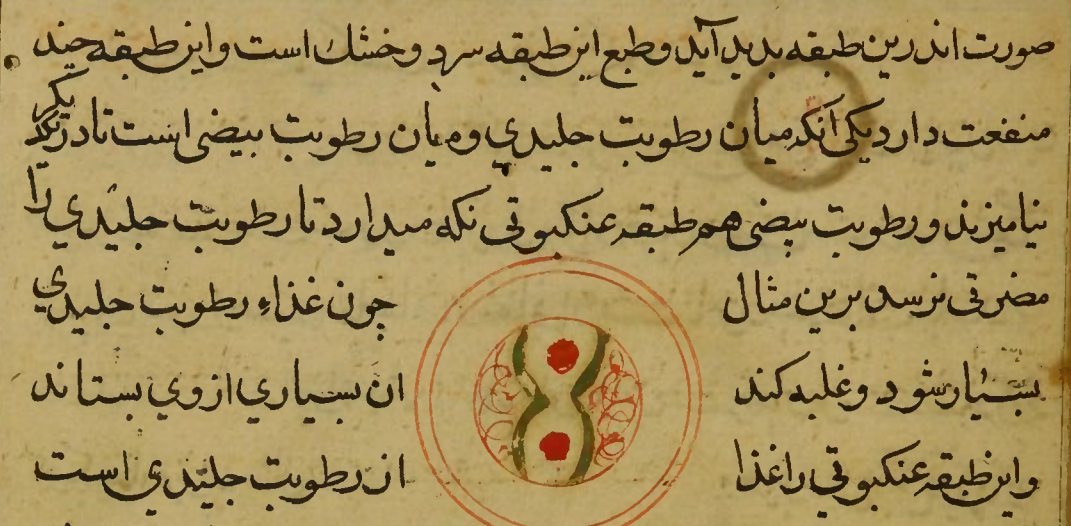 صورت اندرین طبقه بدید آید و طبع این طبقه سرد و خشك است و این طبقه چند
منفعت دارد یکی آنکه میان رطوبت جلیدي و میان رطوبت بیضی است تا در یکدیگر
نیامیزند و رطوبت بیضی هم طبقه عنکبوتی نکه میدارد تا رطوبت جلیدي را
مضرتی نرسد برین مثال جون غذاء رطوبت جلیدي
بسیار شود و غلبه کند ان بسیاري از وي بستاند
و این طبقه عنکبوتی را غذا از رطوبت جلیدي است